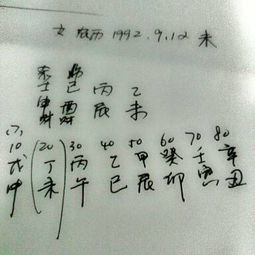 女 农历 1992.9.12 未
壬 己 丙 乙
申 酉 辰 未
10 (20) 30 40 50 60 70 80
戊 丁 丙 乙 甲 癸 壬 辛
申 未 午 巳 辰 卯 寅 丑